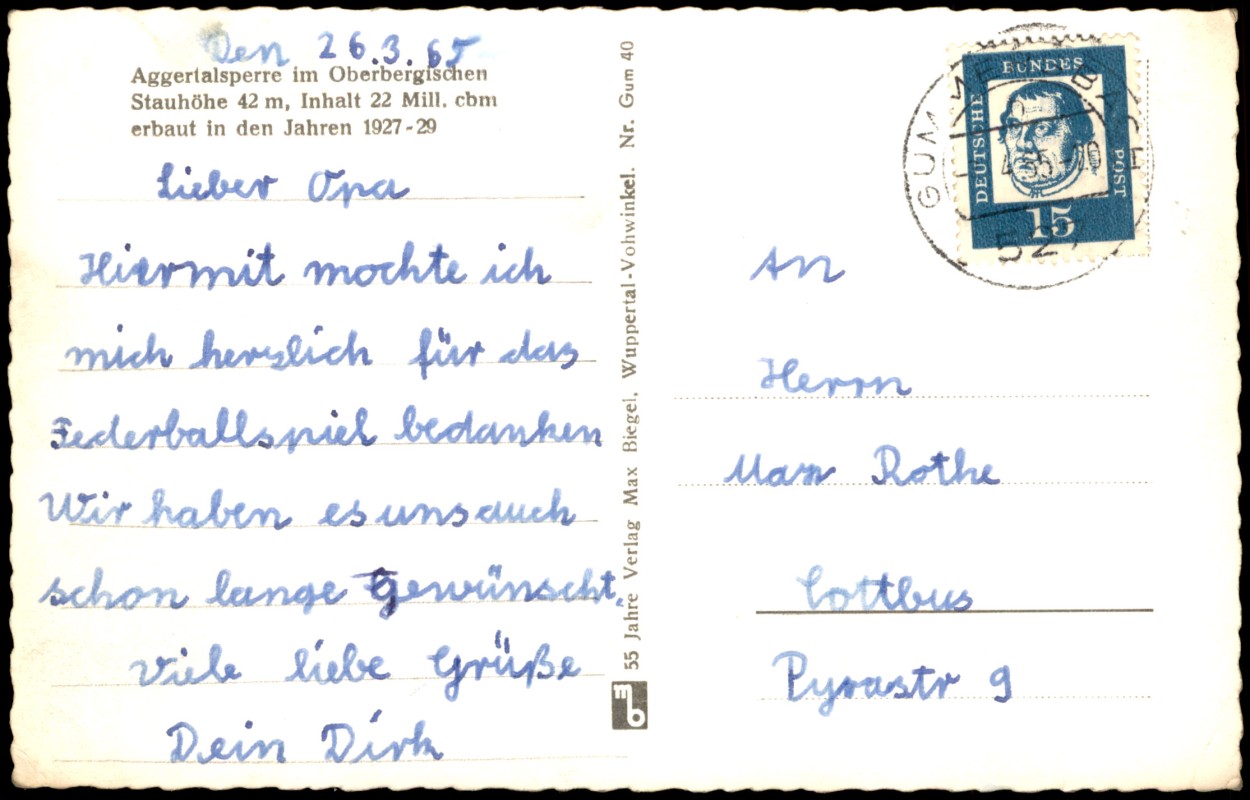 Den 26.3.65
Aggertalsperre im Oberbergischen
Stauhöhe 42 m, Inhalt 22 Mill. cbm
erbaut in den Jahren 1927-29
Lieber Opa
Hiermit mochte ich
mich herzlich für das
Federballspiel bedanken
Wir haben es uns auch
schon lange Gewünscht.
Viele liebe Grüße
Dein Dirk
55 Jahre Verlag Max Biegel, Wuppertal-Vohwinkel. Nr. Gum 40
mb
DEUTSCHE
BUNDES
POST
15
527
An
Herrn
Max Rothe
Cottbus
Pyrastr 9